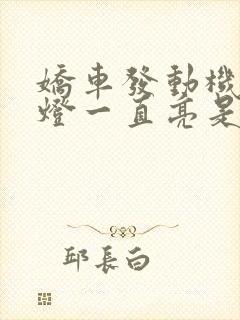 嬌車發動機
燈一直亮是
邱長白